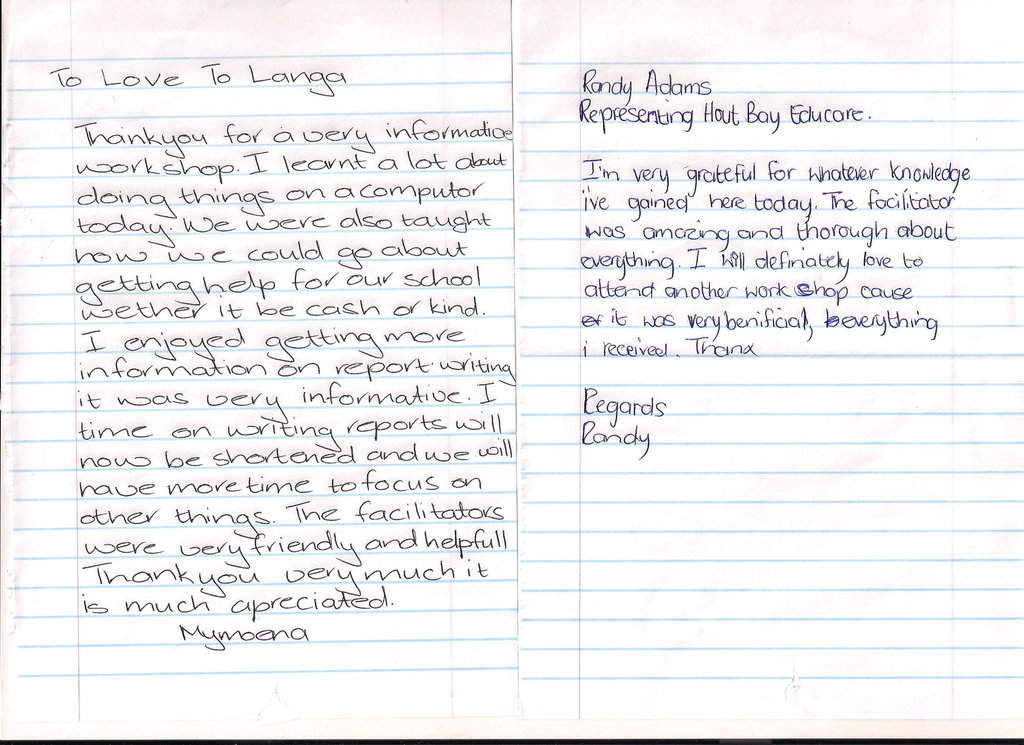 To Love To Langa
Thankyou for a very informative
workshop. I learnt a lot about
doing things on a computor
today. We were also taught
how we could go about
getting help for our school
wether it be cash or kind.
I enjoyed getting more
information on report writing
it was very informative. I
time on writing reports will
now be shortened and we will
have more time to focus on
other things. The facilitators
were very friendly and helpfull
Thankyou very much it
is much apreciated.
Mymoena
Randy Adams
Representing Hout Bay Educare.
I'm very grateful for whatever knowledge
i've gained here today. The facilitator
was amazing and thorough about
everything. I will definately love to
attend another work shop cause
it was very benificial, everything
i received. Thanx
Regards
Randy